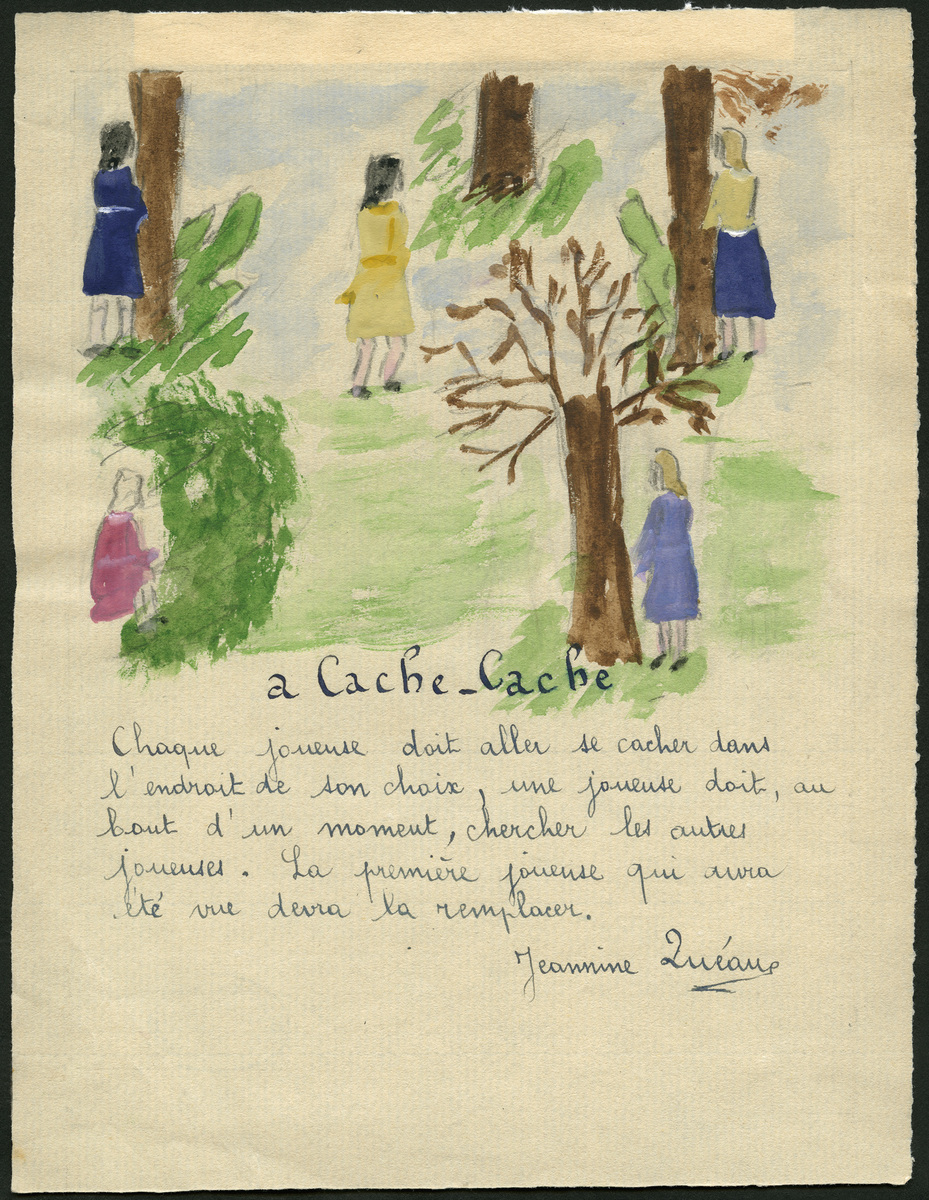 a Cache-Cache
Chaque joueuse doit aller se cacher dans
l'endroit de son choix, une joueuse doit, au
bout d'un moment, chercher les autres
joueuses. La première joueuse qui aura
été vue devra la remplacer.
Jeannine